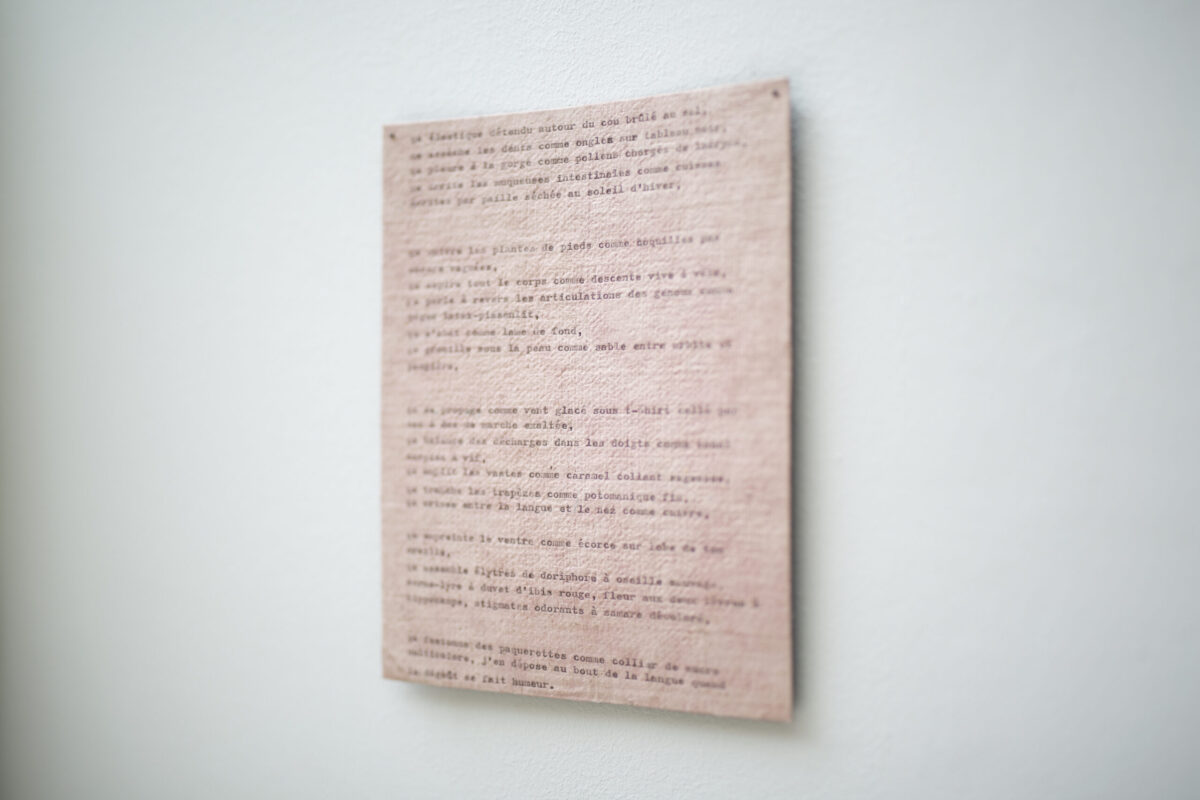 ça élastique détendu autour du cou brûlé au sel,
les dents comme ongles sur tableau noir,
ça pleure à la gorge comme pollens chargés de
ça irrite les muqueuses intestinales comme cuisses
irritées par paille séchée au soleil d'hiver,
les plantes de pieds comme coquilles pas
vaguées,
ça aspire tout le corps comme descente vive à vélo,
ça parle à revers les articulations des genoux comme
ça s'abat comme lame de fond,
ça grouille sous la peau comme sable entre orbite et
paupière,
ça se propage comme vent glacé sous t-shirt collé par
de marche exaltée,
ça balance des décharges dans les doigts comme
à vif,
ça emplit les vastes comme caramel collant sagesses,
ça tranche les trapèzes comme potomanique fil,
ça crisse entre la langue et le nez comme cuivre,
ça empreinte le ventre comme écorce sur lobe de ton
oreille,
ça assemble élytres de doriphore à oseille sauvage,
à duvet d'ibis rouge, fleur aux deux lèvres à
hippocampe, stigmates odorants à samare
ça fusionne des paquerettes comme collier de sucre
multicolore, j'en dépose au bout de la langue quand
le dégoût se fait humeur.